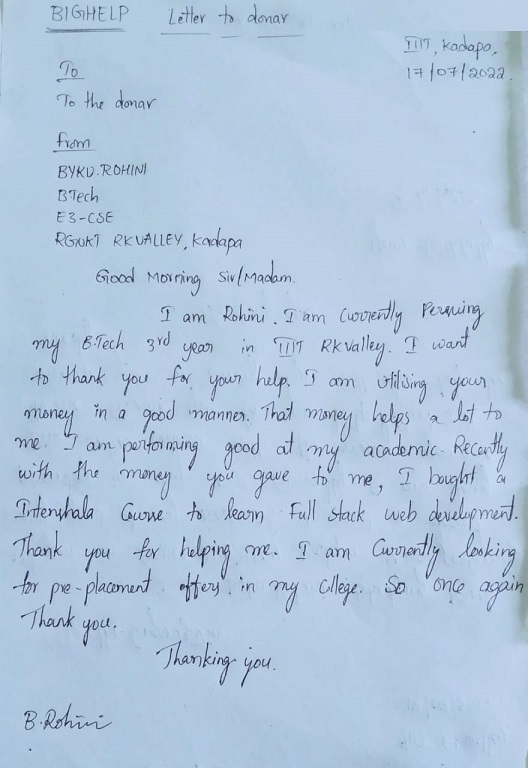 BIGHELP Letter to donar
IIIT, Kadapa,
17/07/2022.
To
To the donar
from
BYKD.ROHINI
BTech
E3-CSE
RGUKT RKVALLEY, Kadapa
Good Morning Sir/Madam.
I am Rohini. I am Currently Persuing
my B.Tech 3rd year in IIIT RK Valley. I want
to thank you for your help. I am utilising your
money in a good manner. That money helps a lot to
me. I am performing good at my academic. Recently
with the money you gave to me, I bought a
Internshala Course to learn Full stack web development.
Thank you for helping me. I am Currently looking
for pre-placement offers in my College. So once again
Thank you.
Thanking you.
B.Rohini